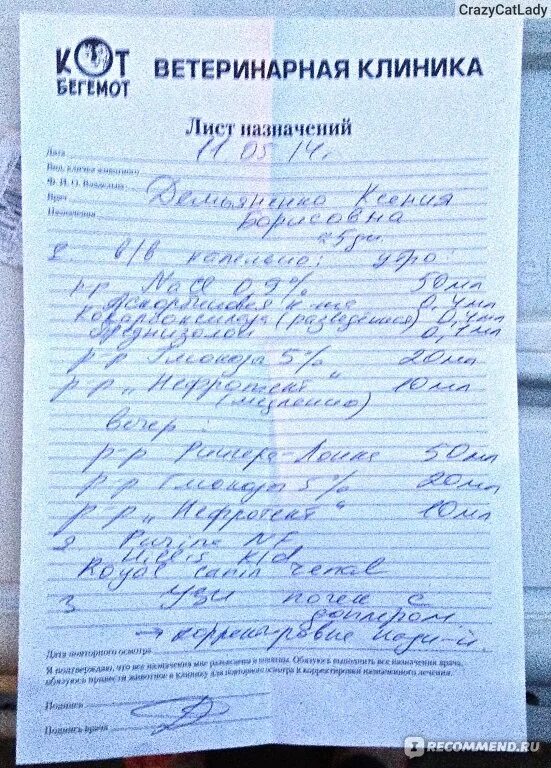 CrazyCatLady
КОТ БЕГЕМОТ
ВЕТЕРИНАРНАЯ КЛИНИКА
Лист назначений
Дата 11.05.14г.
Вид, кличка животного
Ф. И. О. Владельца
Врач Демьяненко Ксения
Борисовна
Назначения
5 дн
1. в/в капельно: утро:
р-р NaCl 0,9% 50мл
Аскорбиновая к-та 0,4мл
Кокарбоксилаза (разведенная) 0,4мл
Преднизолон 0,1мл
р-р Глюкоза 5% 20мл
р-р "Нефротект" 10мл
(медленно)
вечер:
р-р Рингера-Локка 50мл
р-р Глюкоза 5% 20мл
р-р "Нефротект" 10мл
2 Purina NF
Hill's k/d
Royal canin renal
3 УЗИ почек с
доплером
→ корректировка
Дата повторного осмотра
Я подтверждаю, что все назначения мне разъяснены и понятны. Обязуюсь выполнить все назначения врача,
обязуюсь привести животное в клинику для повторного осмотра и корректировки назначенного лечения.
Подпись
Подпись врача
IRECOMMEND.RU